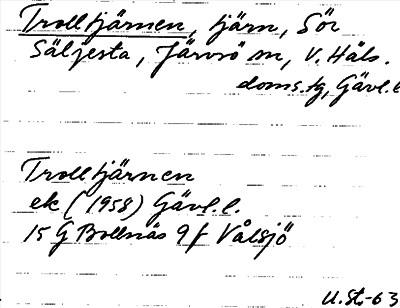 Trolltjärnen, tjärn, Sör
Säljesta, Järvsö sn, V. Häls.
doms.tg, Gävl.l
Trolltjärnen
ek (1958) Gävl.l.
15 G Bollnäs 9 f Vålsjö
U.St.-63